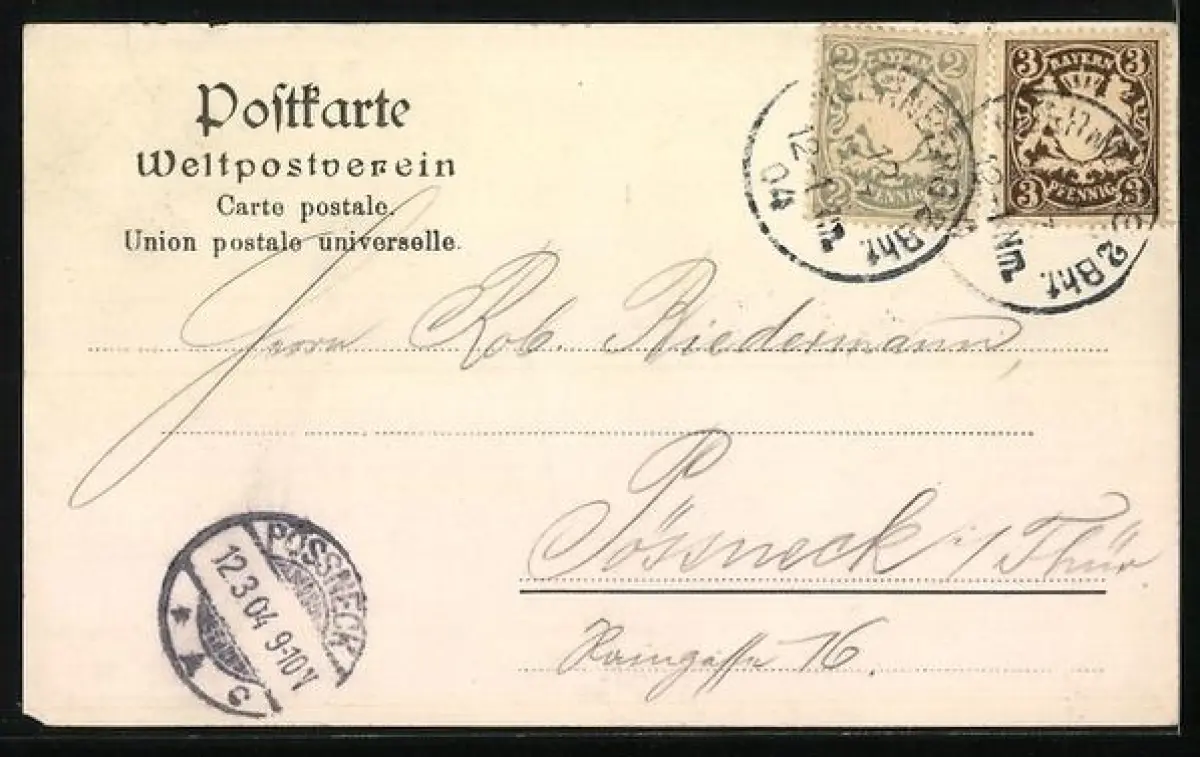 Postkarte
Weltpostverein
Carte postale.
Union postale universelle.
2 BAYERN 2
2 PFENNIG 2
3 BAYERN 3
3 PFENNIG 3
12
04
2 Bhf.
2 Bhf.
Herrn Rob. Biedermann,
Pössneck i/Thür
Raingasse 16.
PÖSSNECK
12.3.04 9-10V
* A c